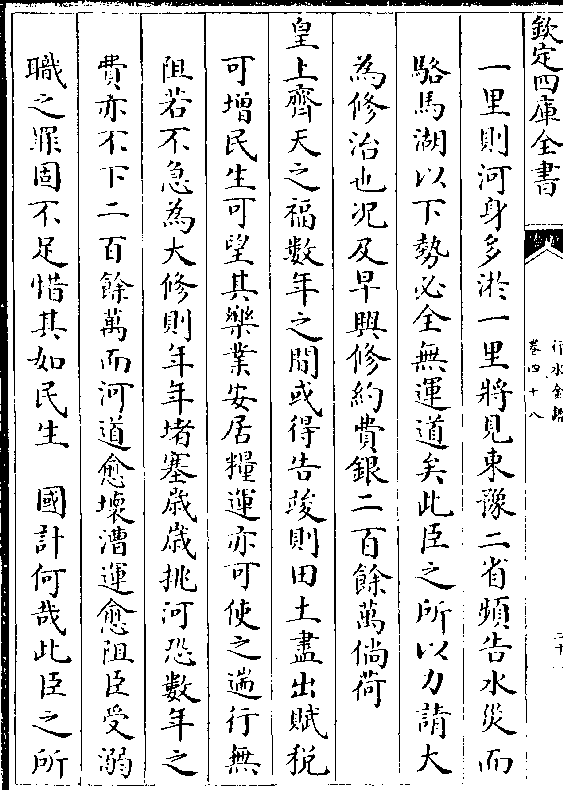 欽定四庫全書
行水金鑑
卷四十八
一里則河身多淤一里將見東豫二省頻告水災而
駱馬湖以下勢必全無運道矣此臣之所以力請大
為修治也況及早興修約費銀二百餘萬倘荷
皇上齊天之福數年之間或得告竣則田土盡出賦稅
可增民生可望其樂業安居糧運亦可使之遄行無
阻若不急為大修則年年堵塞歲歲挑河恐數年之
費亦不下二百餘萬而河道愈壞漕運愈阻臣受溺
職之罪固不足惜其如民生 國計何哉此臣之所